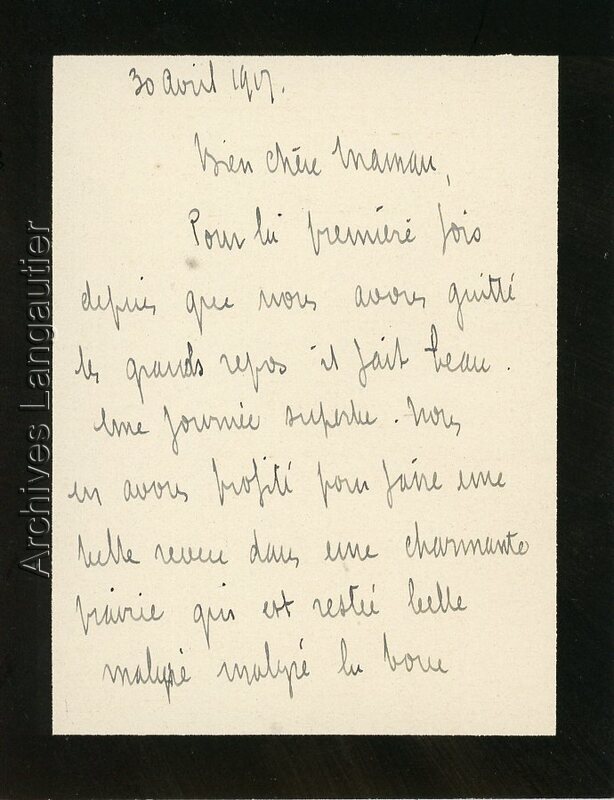 30 Avril 1917.
Bien chère Maman,
Pour la première fois
depuis que nous avons quitté
les grands repos il fait beau.
Une journée superbe. Nous
en avons profité pour faire une
belle revue dans une charmante
prairie qui est restée belle
malgré malgré la boue
Archives Langautier